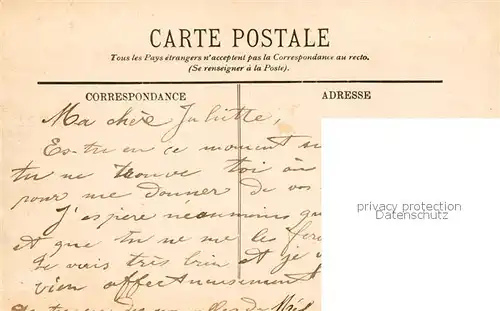 CARTE POSTALE
Tous les Pays étrangers n'acceptent pas la Correspondance au recto.
(Se renseigner à la Poste).
CORRESPONDANCE
ADRESSE
Ma chère Juliette,
Es-tu en ce moment
tu ne trouve toi
pour me donner de vos
J'espère néanmoins
et que tu ne me les
Je vais très bien et je
vien affectueusement
privacy protection
Datenschutz